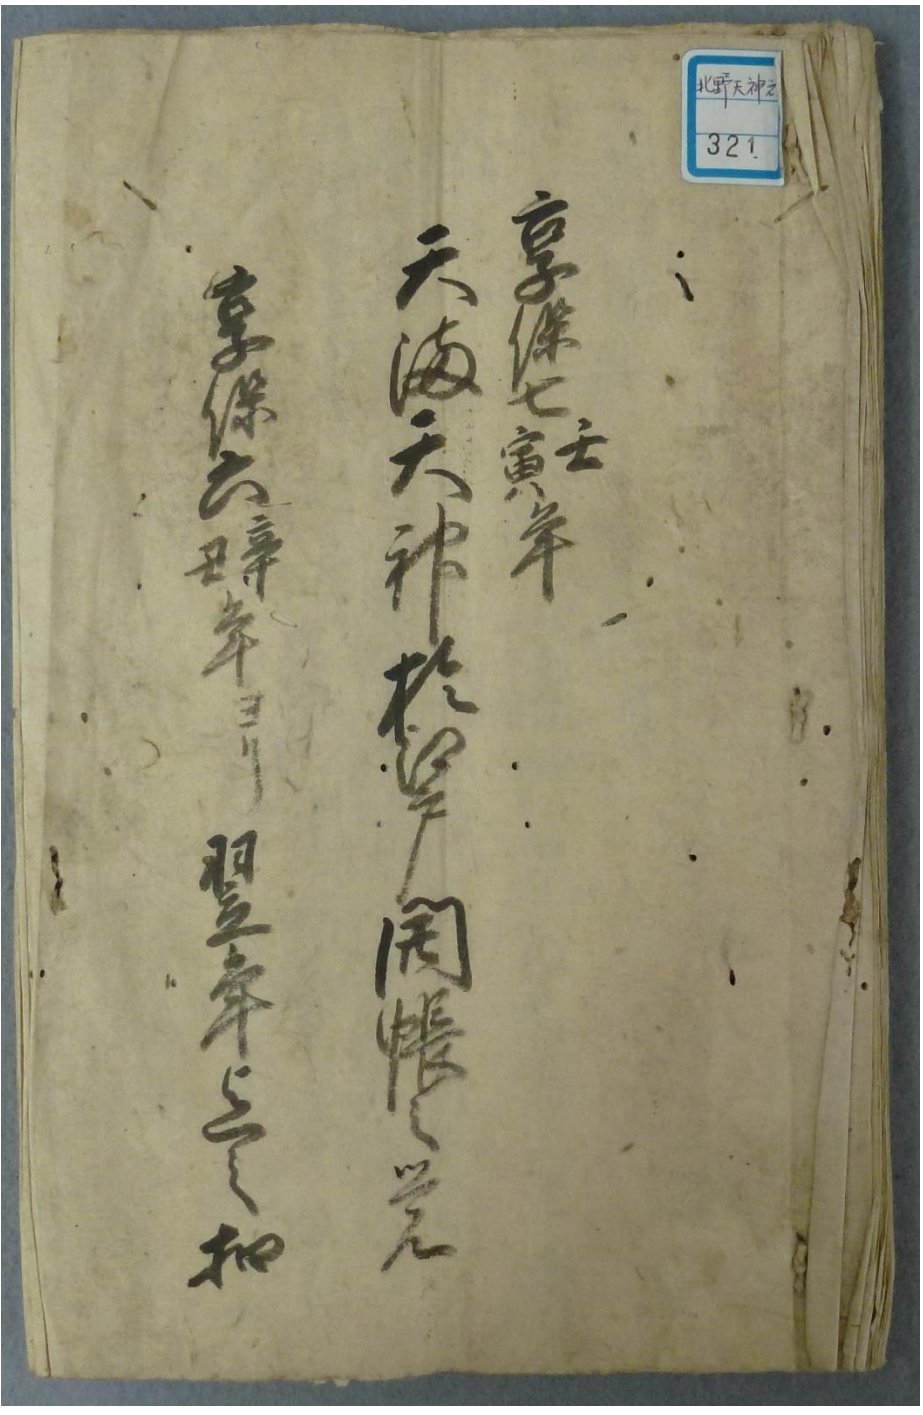 北野天神
321
享保七壬寅年
天満天神於江戸開帳之覚
享保六辛丑年ヨリ翌年迄之扣